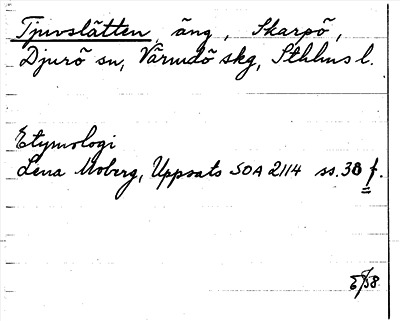 Tjuvslätten, äng, Skarpö,
Djurö sn, Värmdö skg, Sthlms l.
Etymologi
Lena Moberg, Uppsats SOA 2114 ss. 38 f.